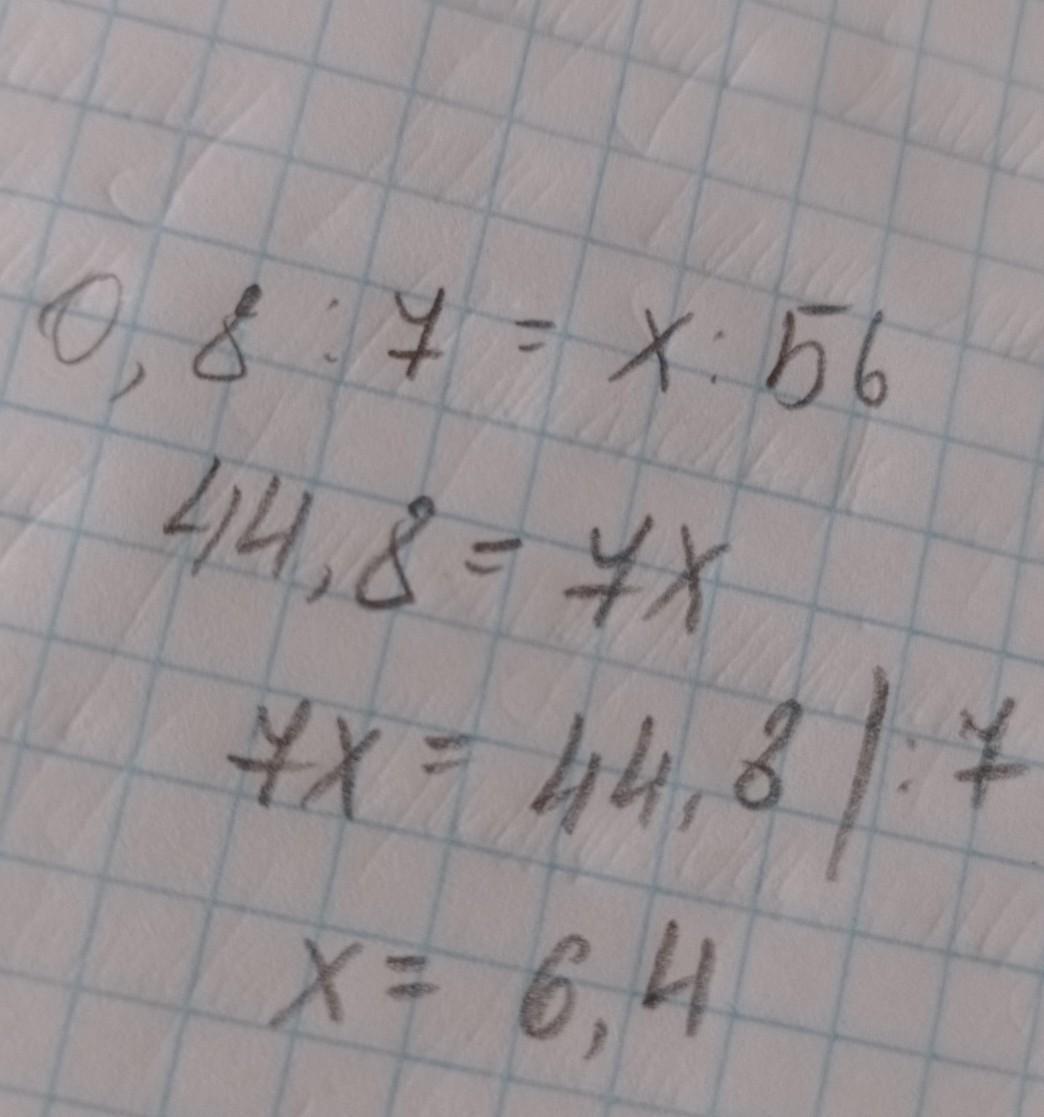 0,8 : 7 = x : 56
44,8 = 7x
7x = 44,8 | : 7
x = 6,4